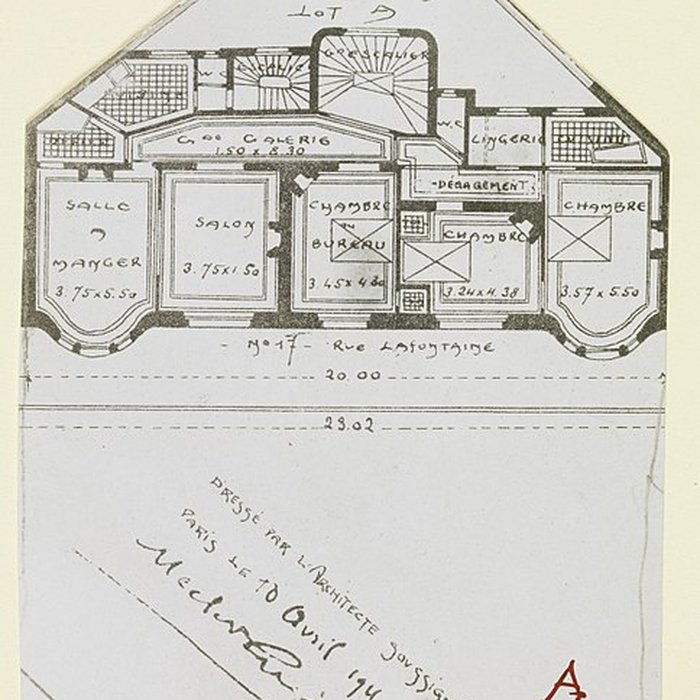 LOT A
W.C
Gd ESCALIER
W.C
LINGERIE
Gde GALERIE
1.50 x 8.30
DÉGAGEMENT
SALLE
À
MANGER
3.75 x 5.50
SALON
3.75 x 1.50
CHAMBRE
OU
BUREAU
3.45 x 4.30
CHAMBRE
3.24 x 4.38
CHAMBRE
3.57 x 5.50
- No 17 - RUE LAFONTAINE
20.00
23.02
DRESSÉ PAR L'ARCHITECTE SOUSSIGN
PARIS LE 10 Avril 19
A